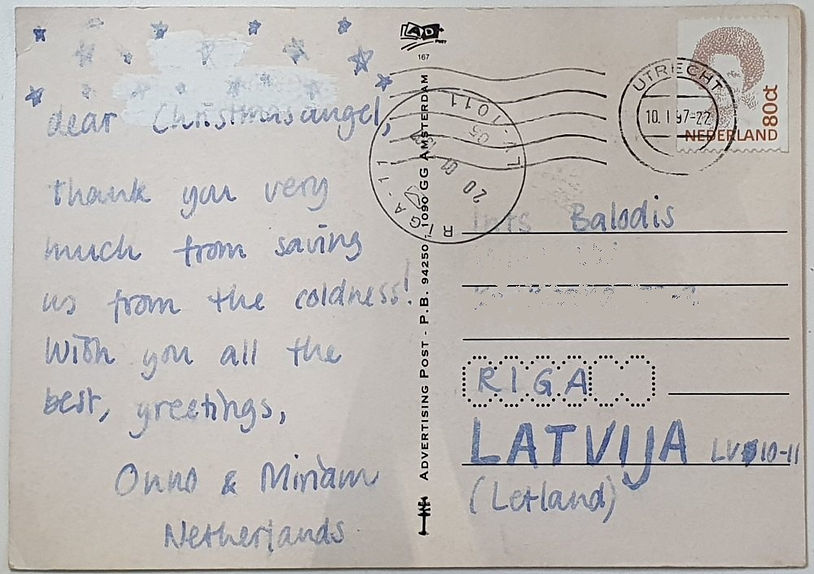 dear Christmasangel,
thank you very
much from saving
us from the coldness!
With you all the
best, greetings,
Onno & Miriam
Netherlands
167
ADVERTISING POST · P.B. 94250, 1090 GG AMSTERDAM
RIGA-11
LV-1011
20 01
05
UTRECHT
10.I.97-22
80ct
NEDERLAND
Ints Balodis
RIGA
LATVIJA LV 10-11
(Letland)